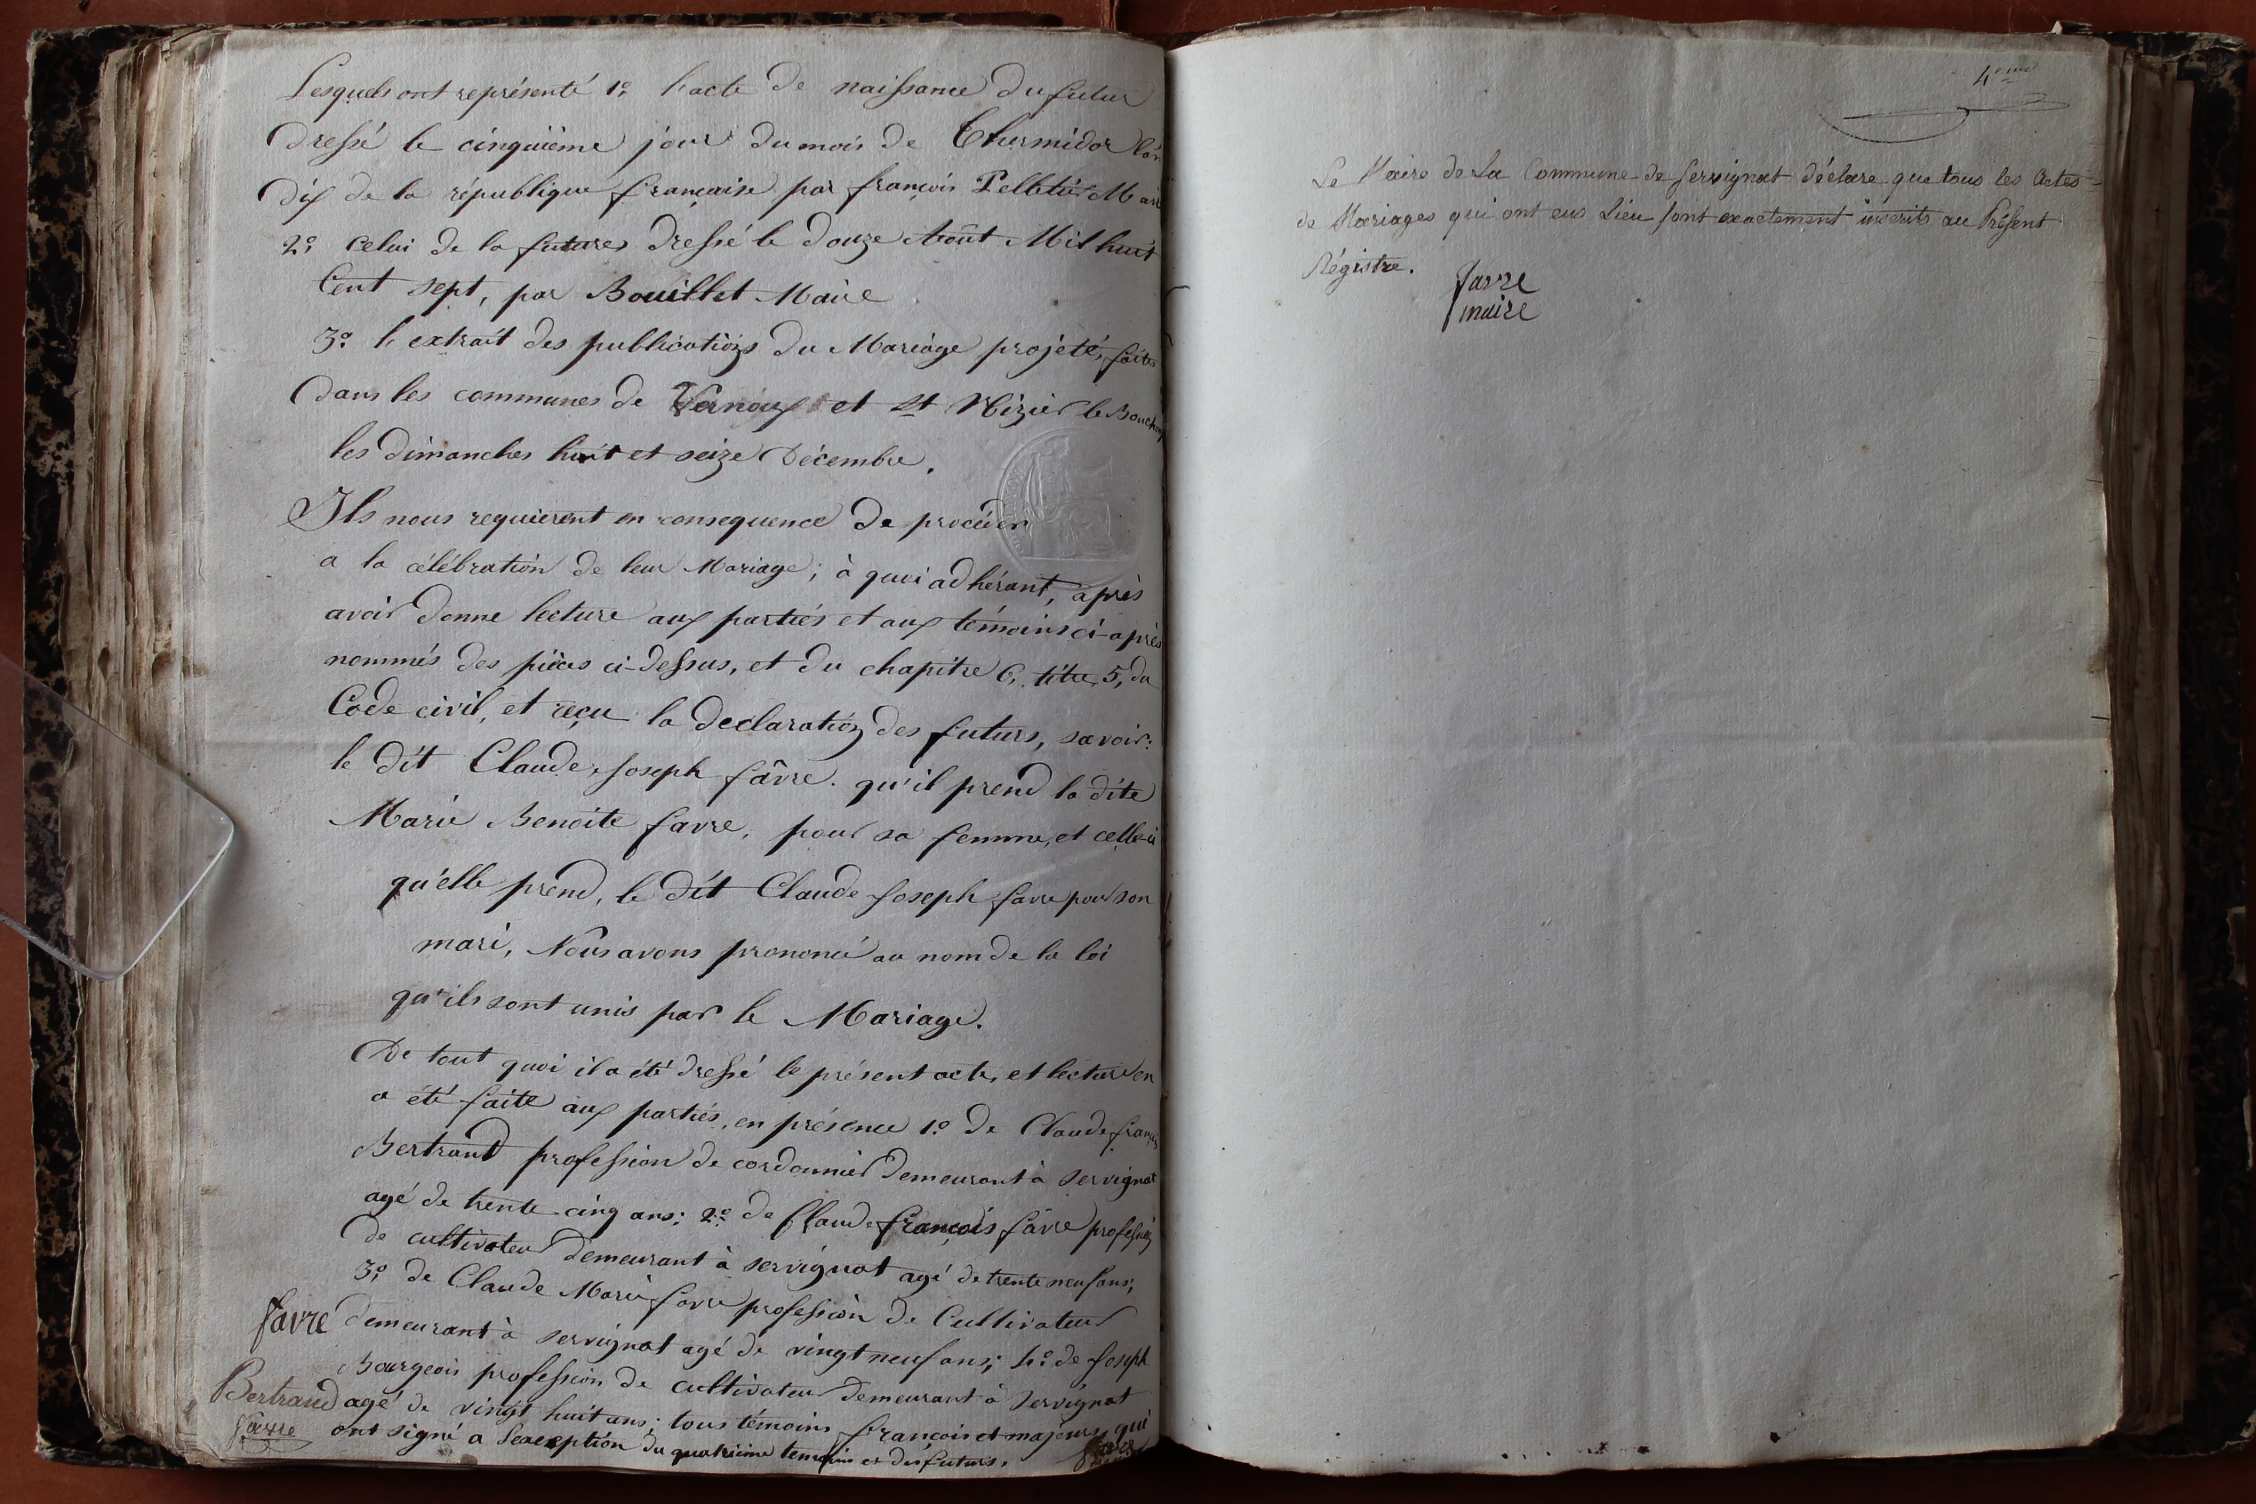 Lesquels ont représenté 1.º l'acte de naissance du futur
dressé le cinquième jour du mois de Thermidor l'an
dix de la république française par françois Pelletier Maire
2.º celui de la future, dressé le douze Août Mil huit
Cent sept, par Bouillet Maire
3.º l'extrait des publications du Mariage projeté, faites
dans les communes de Vernoux et St Nizier le Bouchoux
les dimanches huit et seize Décembre.
Ils nous requierent en consequence de procéder
a la célébration de leur Mariage; à quoi adhérant, après
avoir donne lecture aux parties et aux témoins ci-après
nommés des pièces ci-dessus, et du chapitre 6, titre 5, du
Code civil, et reçu la declaration des futurs, savoir:
le dit Claude Joseph fâvre. qu'il prend la dite
Marie Benoite favre, pour sa femme, et celle-ci
qu'elle prend, le dit Claude Joseph favre pour son
mari, Nous avons prononcé au nom de la loi
qu'ils sont unis par le Mariage.
De tout quoi il a été dressé le présent acte, et lecture en
a été faite aux parties, en présence 1.º de Claude françois
Bertrand profession de cordonnier demeurant à servignat
agé de trente-cinq ans; 2.º de Claude françois fâvre profession
de cultivateur demeurant à servignat agé de trente neuf ans;
3.º de Claude Marie favre profession de Cultivateur
favre demeurant à servignat agé de vingt neuf ans; 4.º de Joseph
Bourgeois profession de cultivateur demeurant à Servignat
Bertrand agé de vingt huit ans; tous témoins françois et majeurs, qui
favre ont signé a l'exception du quatrième temoin et des futurs.
4ème
Le Maire de La Commune de Servignat déclare que tous les Actes
de Mariages qui ont eus Lieu sont exactement inscrits au Présent
Régistre.
favre
maire